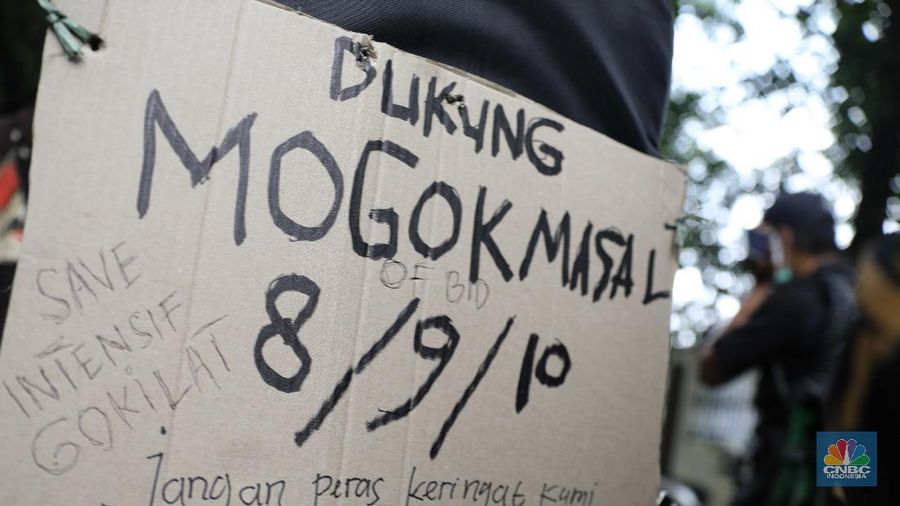 DUKUNG
MOGOK MASAL
OF BID
8/9/10
SAVE
INTENSIF
GOKILAT
Jangan peras keringat kami
CNBC
INDONESIA